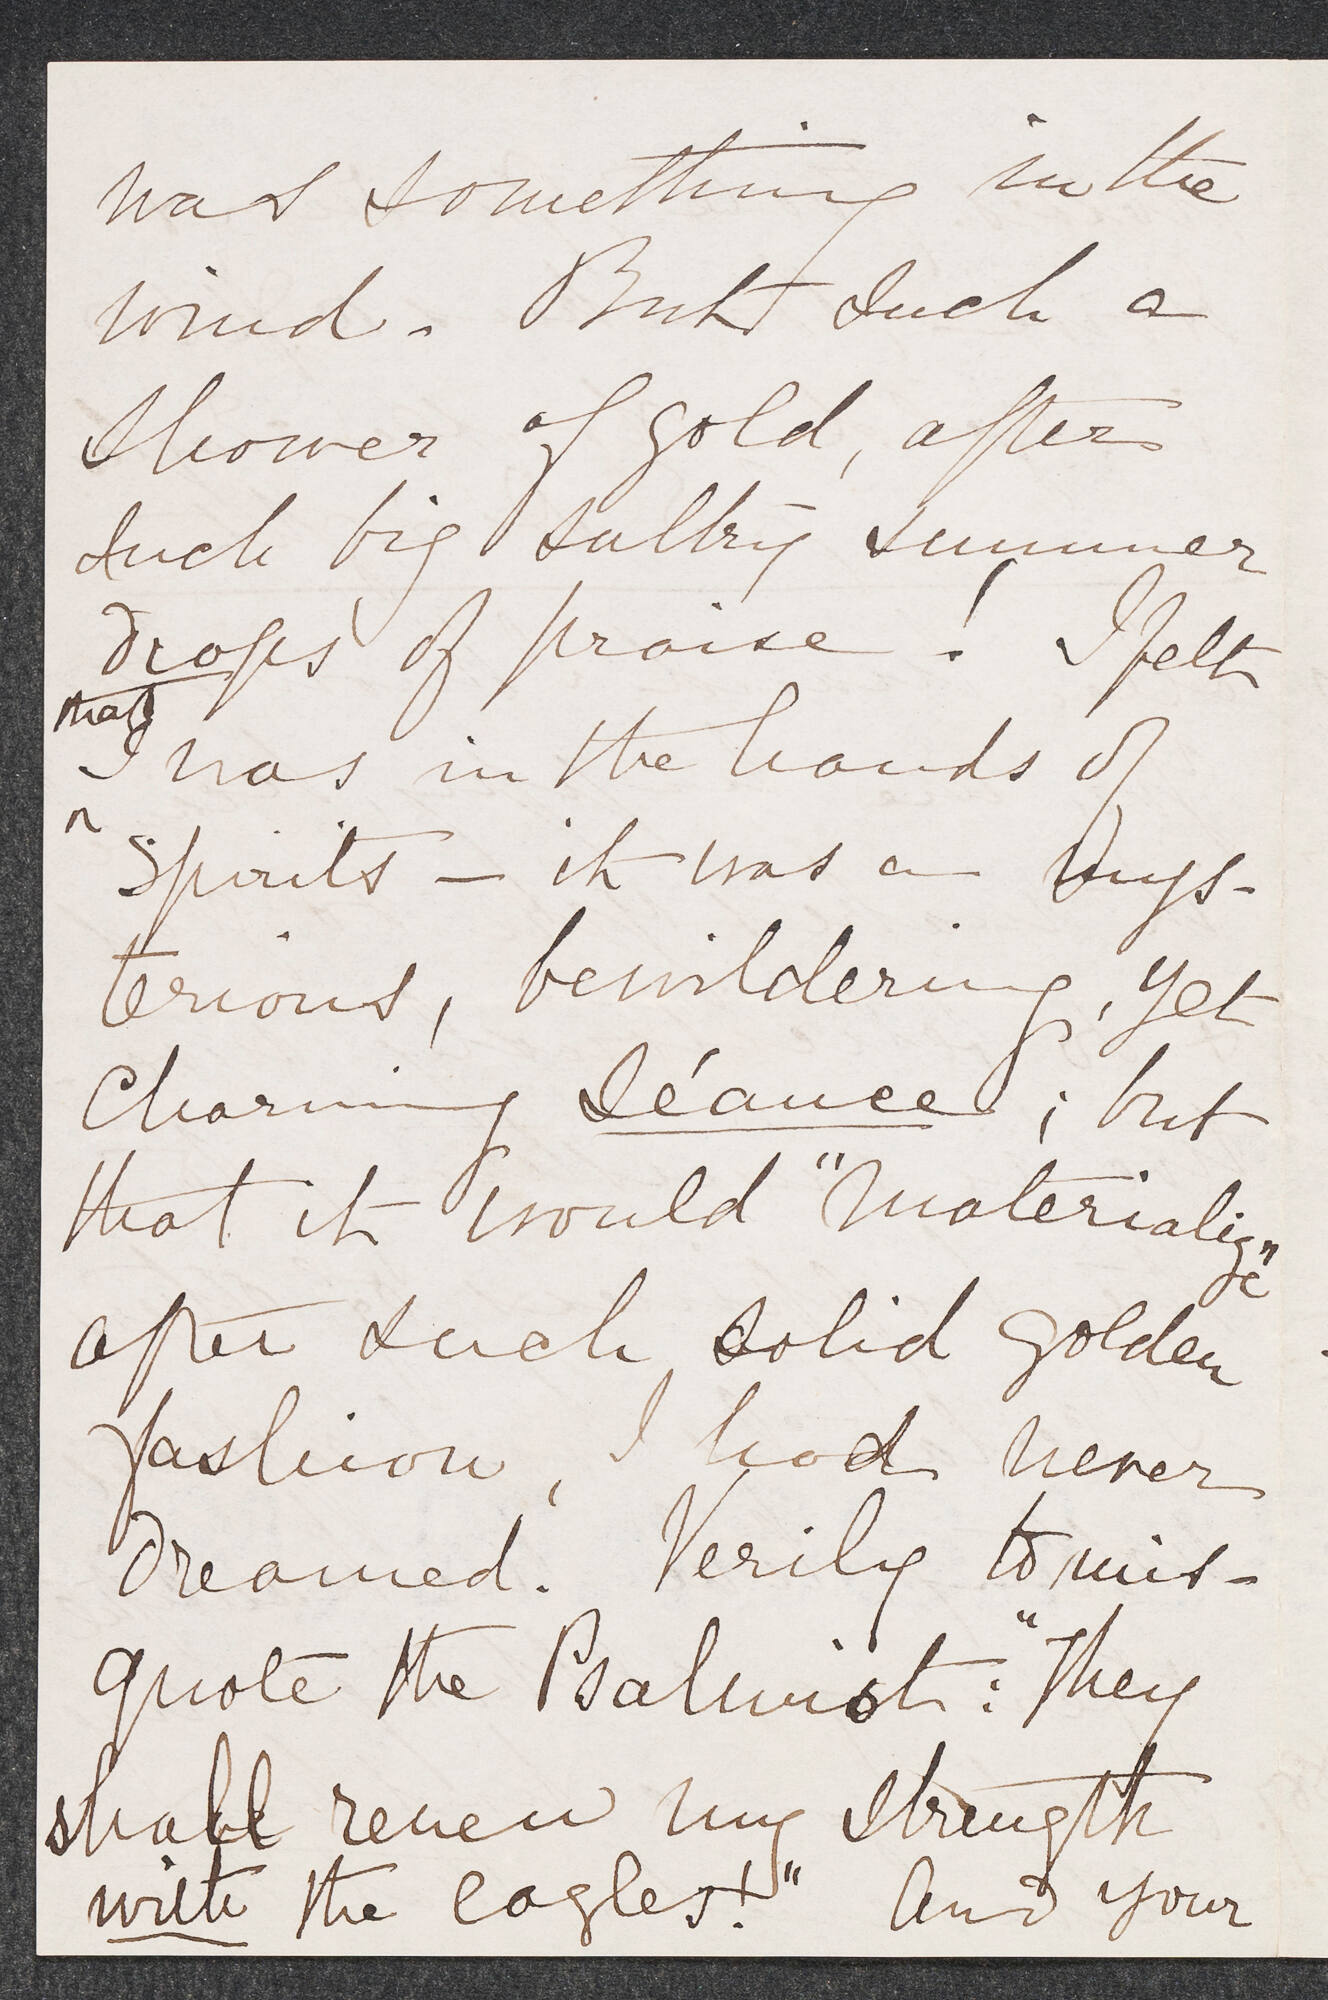 was something in the
wind. But such a
shower of gold, after
such big sultry summer
drops of praise! I felt
that
I was in the hands of
Spirits – it was a mys-
terious, bewildering, yet
charming séance; but
that it would "materialize"
after such solid golden
fashion, I had never
dreamed. Verily to mis-
quote the Psalmist: "They
shall renew my strength
with the eagles!" And your